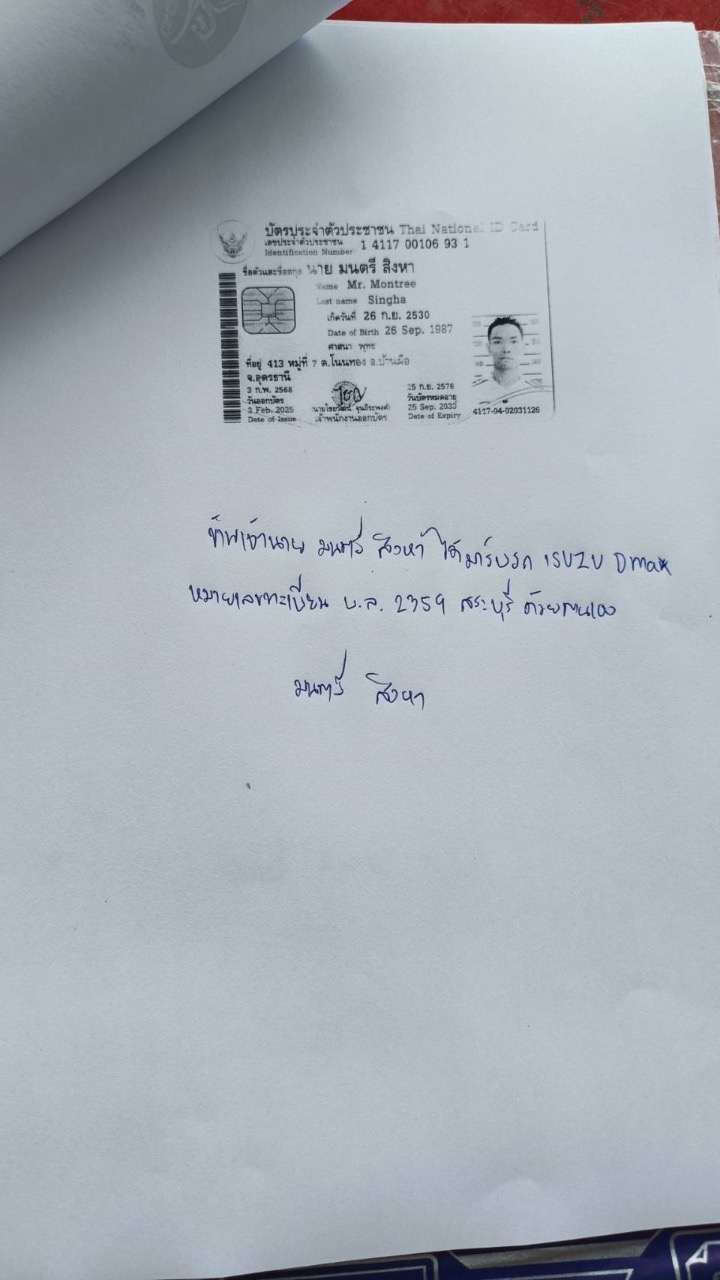 บัตรประจำตัวประชาชน Thai National ID Card
เลขประจำตัวประชาชน 1 4117 00106 93 1
Identification Number
ชื่อตัวและชื่อสกุล นาย มนตรี สิงหา
Name Mr. Montree
Last name Singha
เกิดวันที่ 26 ก.ย. 2530
Date of Birth 26 Sep. 1987
ศาสนา พุทธ
ที่อยู่ 413 หมู่ที่ 7 ต.โนนทอง อ.บ้านผือ
จ.อุดรธานี
3 ก.พ. 2568
วันออกบัตร
3 Feb. 2025
Date of Issue
เจ้าพนักงานออกบัตร
25 ก.ย. 2576
วันบัตรหมดอายุ
25 Sep. 2033
Date of Expiry
4117-04-02031126
ข้าพเจ้านาย มนตรี สิงหา ได้มารับรถ ISUZU Dmax
หมายเลขทะเบียน บ.ล. 2359 สระบุรี ด้วยตนเอง
มนตรี สิงหา